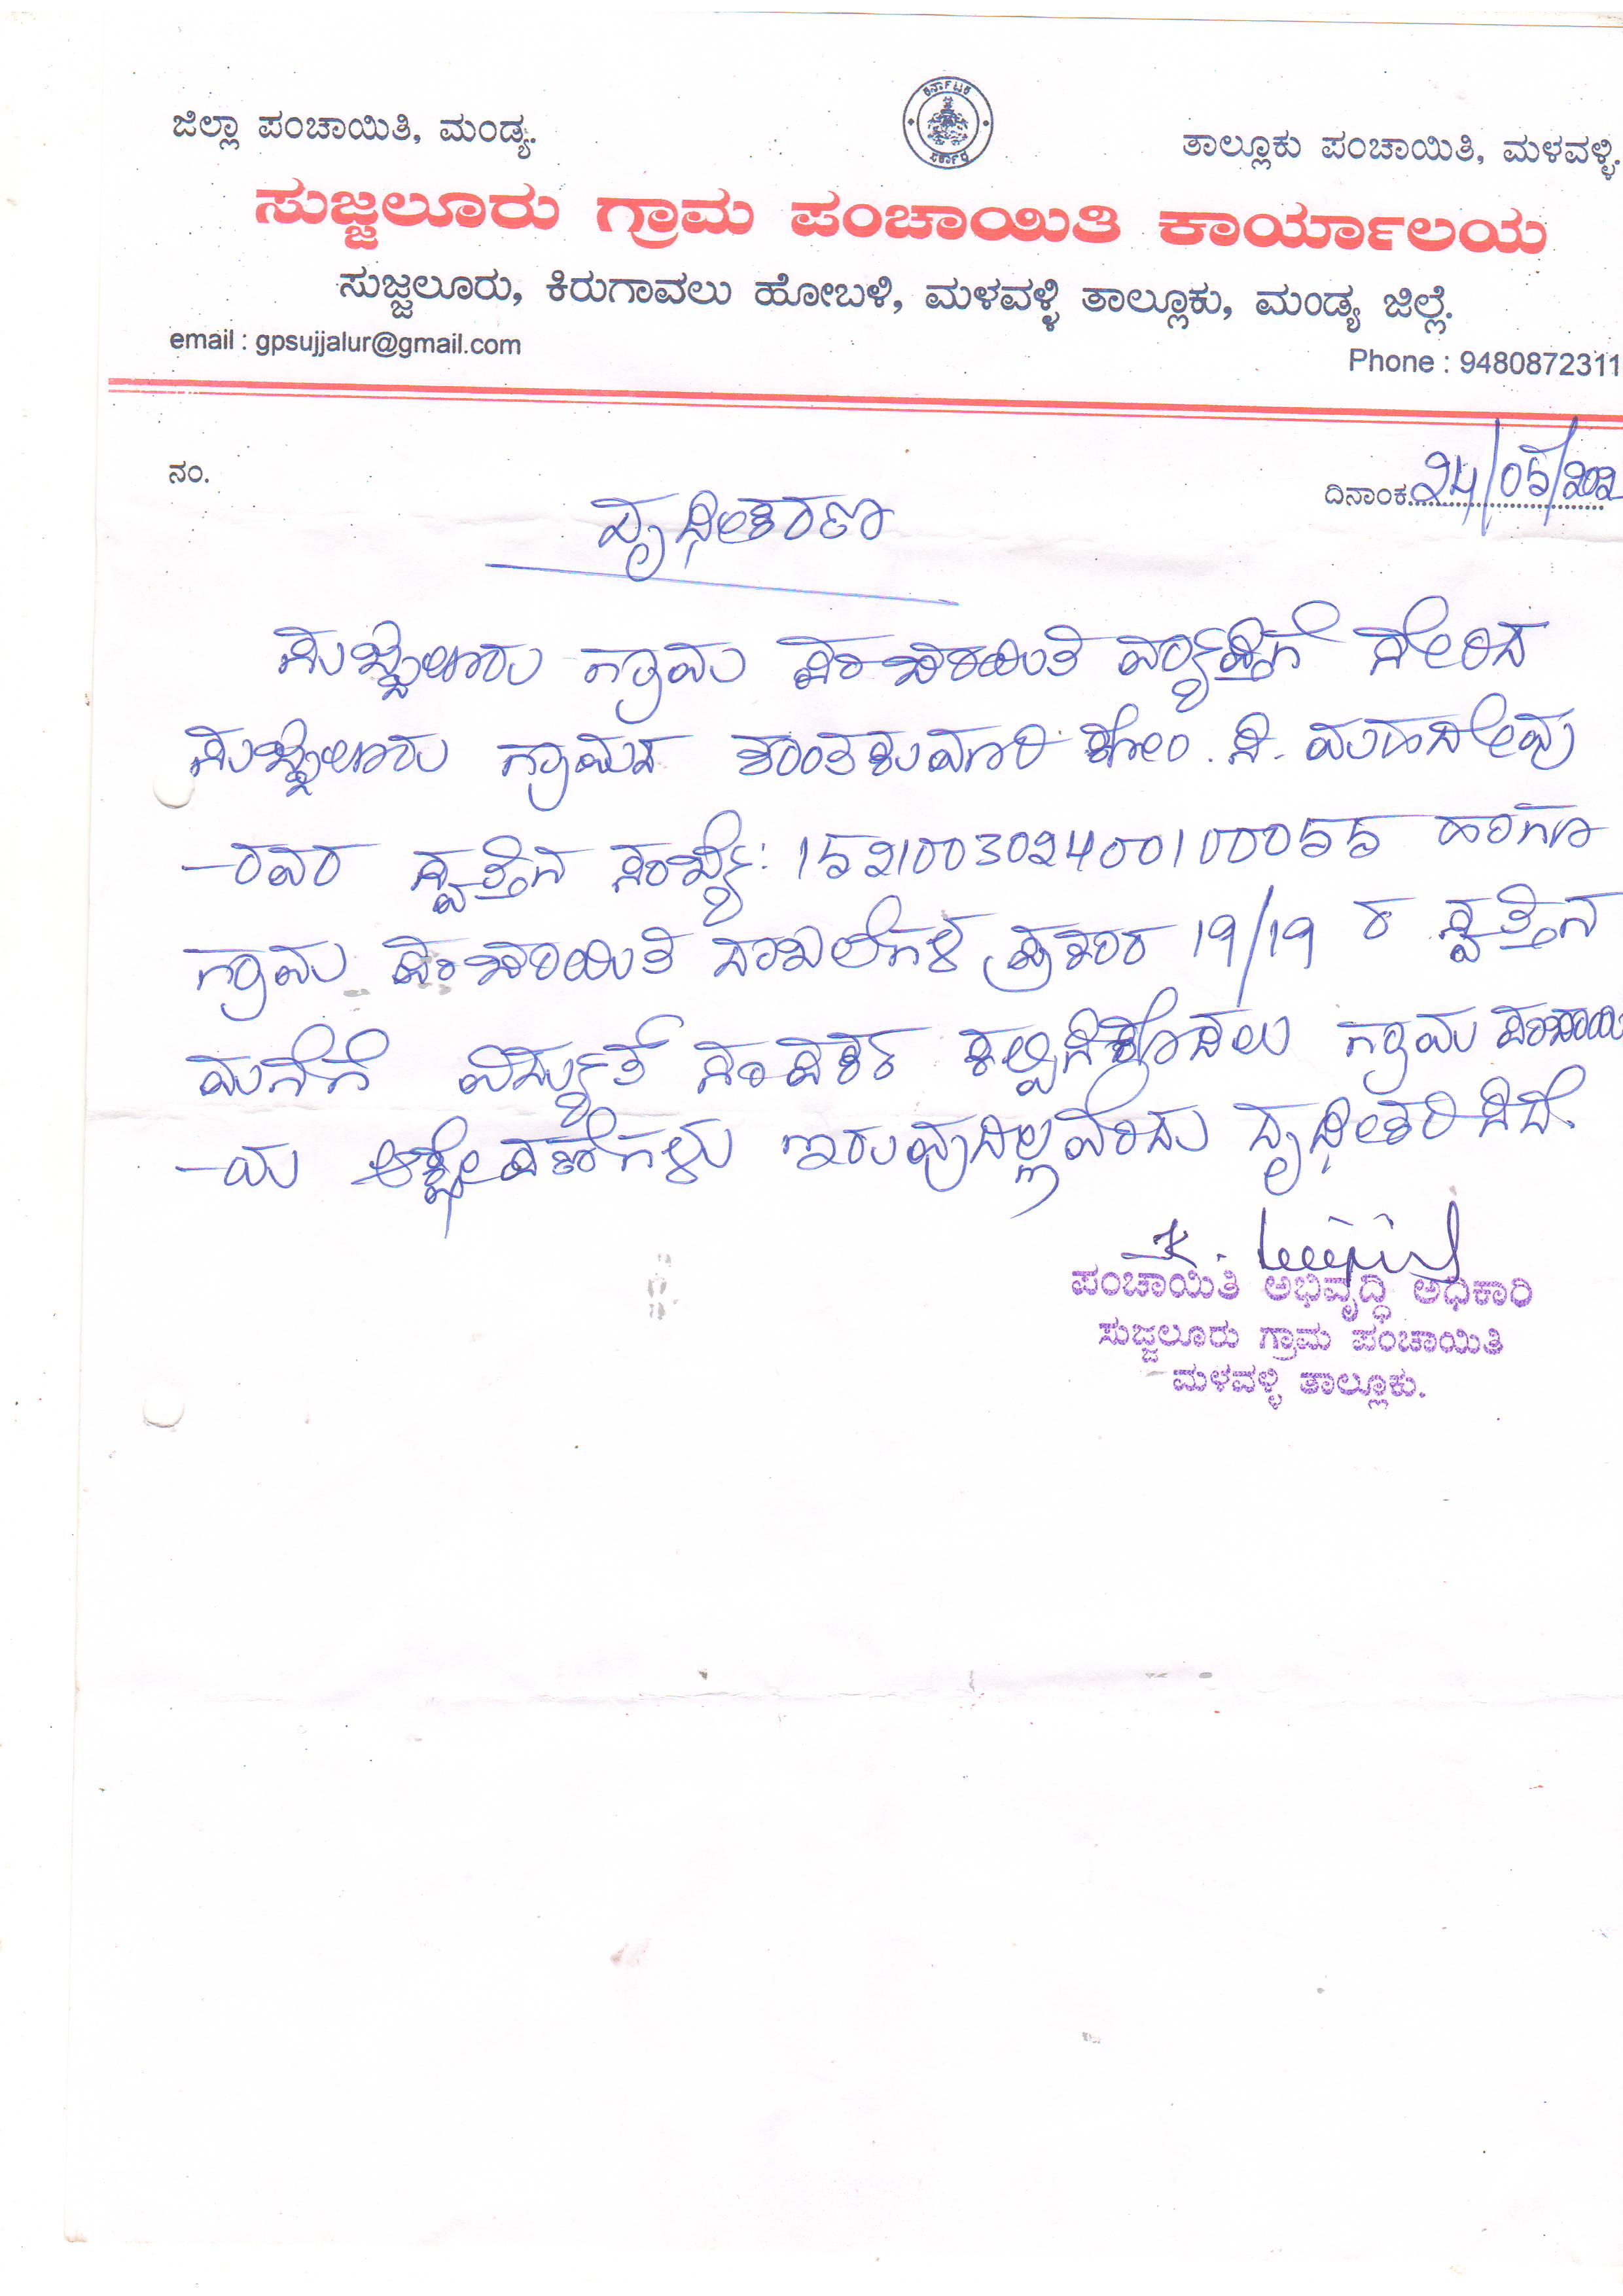 ಕರ್ನಾಟಕ
ಸರ್ಕಾರ
ಜಿಲ್ಲಾ ಪಂಚಾಯಿತಿ, ಮಂಡ್ಯ.
ತಾಲ್ಲೂಕು ಪಂಚಾಯಿತಿ, ಮಳವಳ್ಳಿ.
ಸುಜ್ಜಲೂರು ಗ್ರಾಮ ಪಂಚಾಯಿತಿ ಕಾರ್ಯಾಲಯ
ಸುಜ್ಜಲೂರು, ಕಿರುಗಾವಲು ಹೋಬಳಿ, ಮಳವಳ್ಳಿ ತಾಲ್ಲೂಕು, ಮಂಡ್ಯ ಜಿಲ್ಲೆ.
email : gpsujjalur@gmail.com
Phone : 9480872311
ನಂ.
ದಿನಾಂಕ 24/05/202
ದೃಢೀಕರಣ
ಸುಜ್ಜಲೂರು ಗ್ರಾಮ ಪಂಚಾಯಿತಿ ವ್ಯಾಪ್ತಿಗೆ ಸೇರಿದ
ಸುಜ್ಜಲೂರು ಗ್ರಾಮದ ಶಾಂತಕುಮಾರಿ ಕೋಂ. ಸಿ. ಮಹದೇವು
-ರವರ ಸ್ವತ್ತಿನ ಸಂಖ್ಯೆ: 152100302400100055 ಹಾಗೂ
ಗ್ರಾಮ ಪಂಚಾಯಿತಿ ದಾಖಲೆಗಳ ಪ್ರಕಾರ 19/19 ರ ಸ್ವತ್ತಿನ
ಮನೆಗೆ ವಿದ್ಯುತ್ ಸಂಪರ್ಕ ಕಲ್ಪಿಸಿಕೊಡಲು ಗ್ರಾಮ ಪಂಚಾಯಿ
-ಯ ಆಕ್ಷೇಪಣೆಗಳು ಇರುವುದಿಲ್ಲವೆಂದು ದೃಢೀಕರಿಸಿದೆ.
ಪಂಚಾಯಿತಿ ಅಭಿವೃದ್ಧಿ ಅಧಿಕಾರಿ
ಸುಜ್ಜಲೂರು ಗ್ರಾಮ ಪಂಚಾಯಿತಿ
ಮಳವಳ್ಳಿ ತಾಲ್ಲೂಕು.